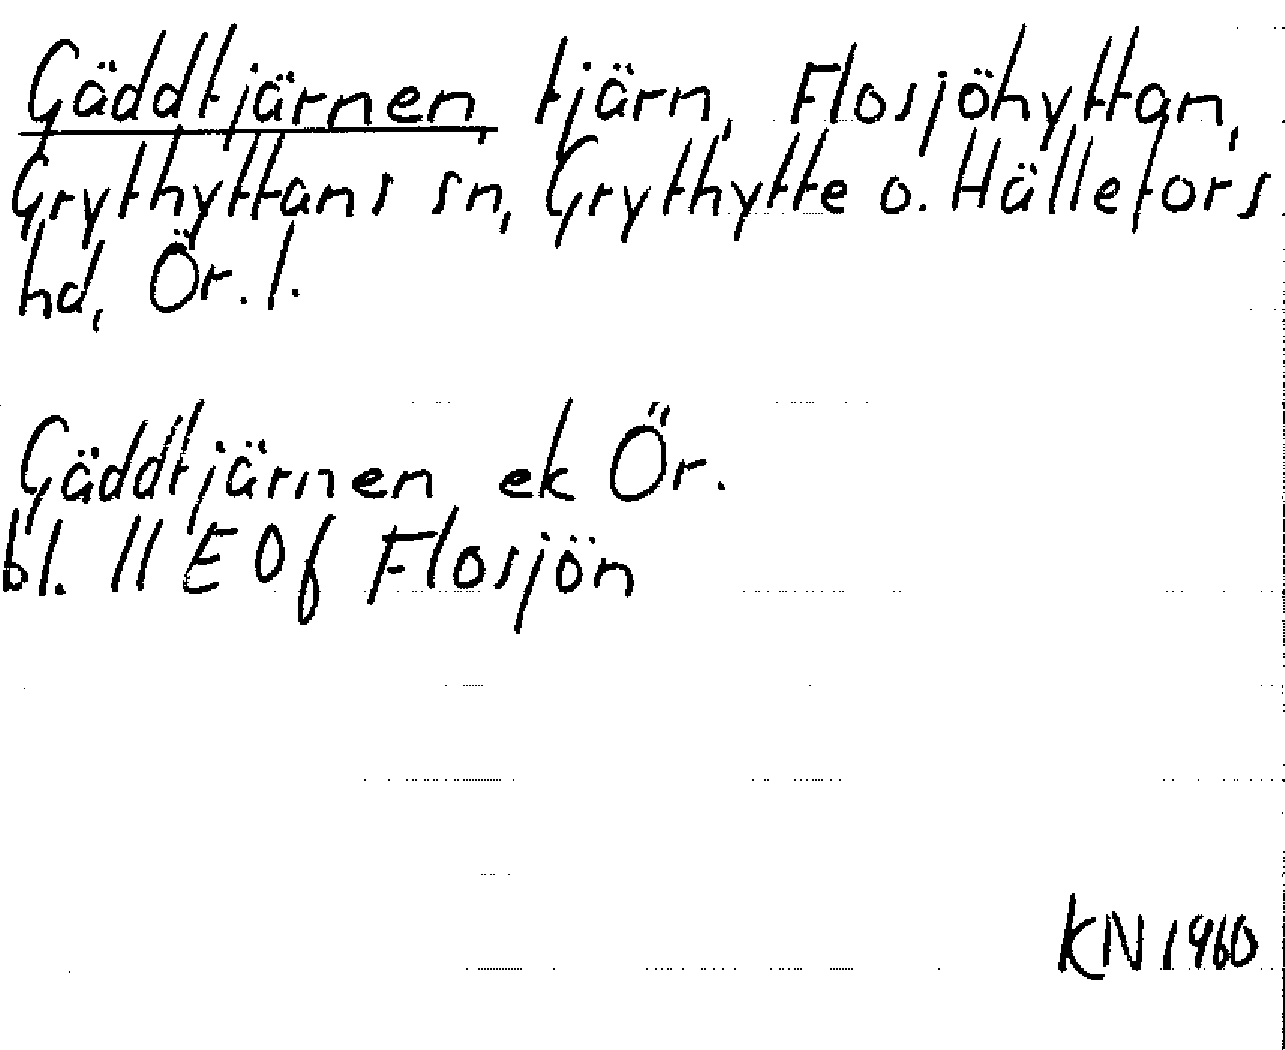 Gäddtjärnen, tjärn, Flosjöhyttan,
Grythyttans sn, Grythytte o. Hällefors
hd, Ör. l.
Gäddtjärnen ek Ör.
bl. 11 E 0f Flosjön
KN 1960